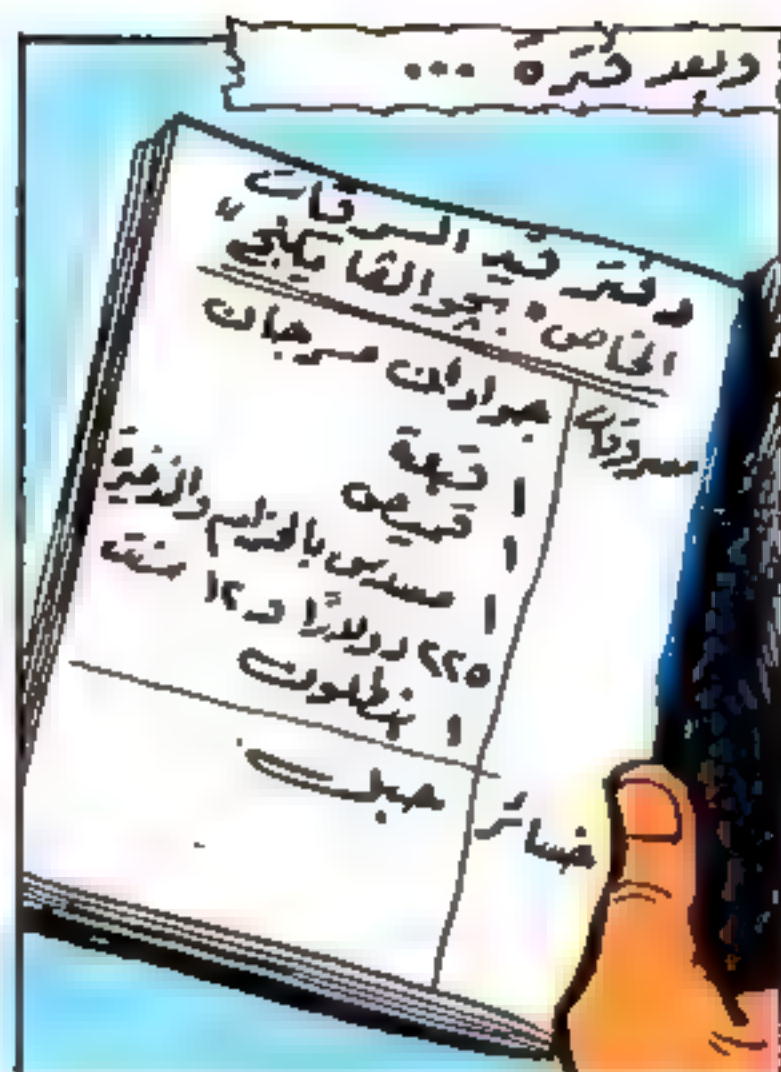 وبعد فترة ...
دفتر قيد السرقات
الخاص "بجو الڤايكنجي"
مسروقات
جوادان مسرجان
١ قبعة
١ قميص
١ مسدس بالحزام والذخيرة
٢٢٥ دولارًا و ١٢ سنت
١ بنطلون
خسائر
حبل